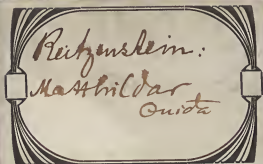 Reitzenstein:
Matthildar
Ouida